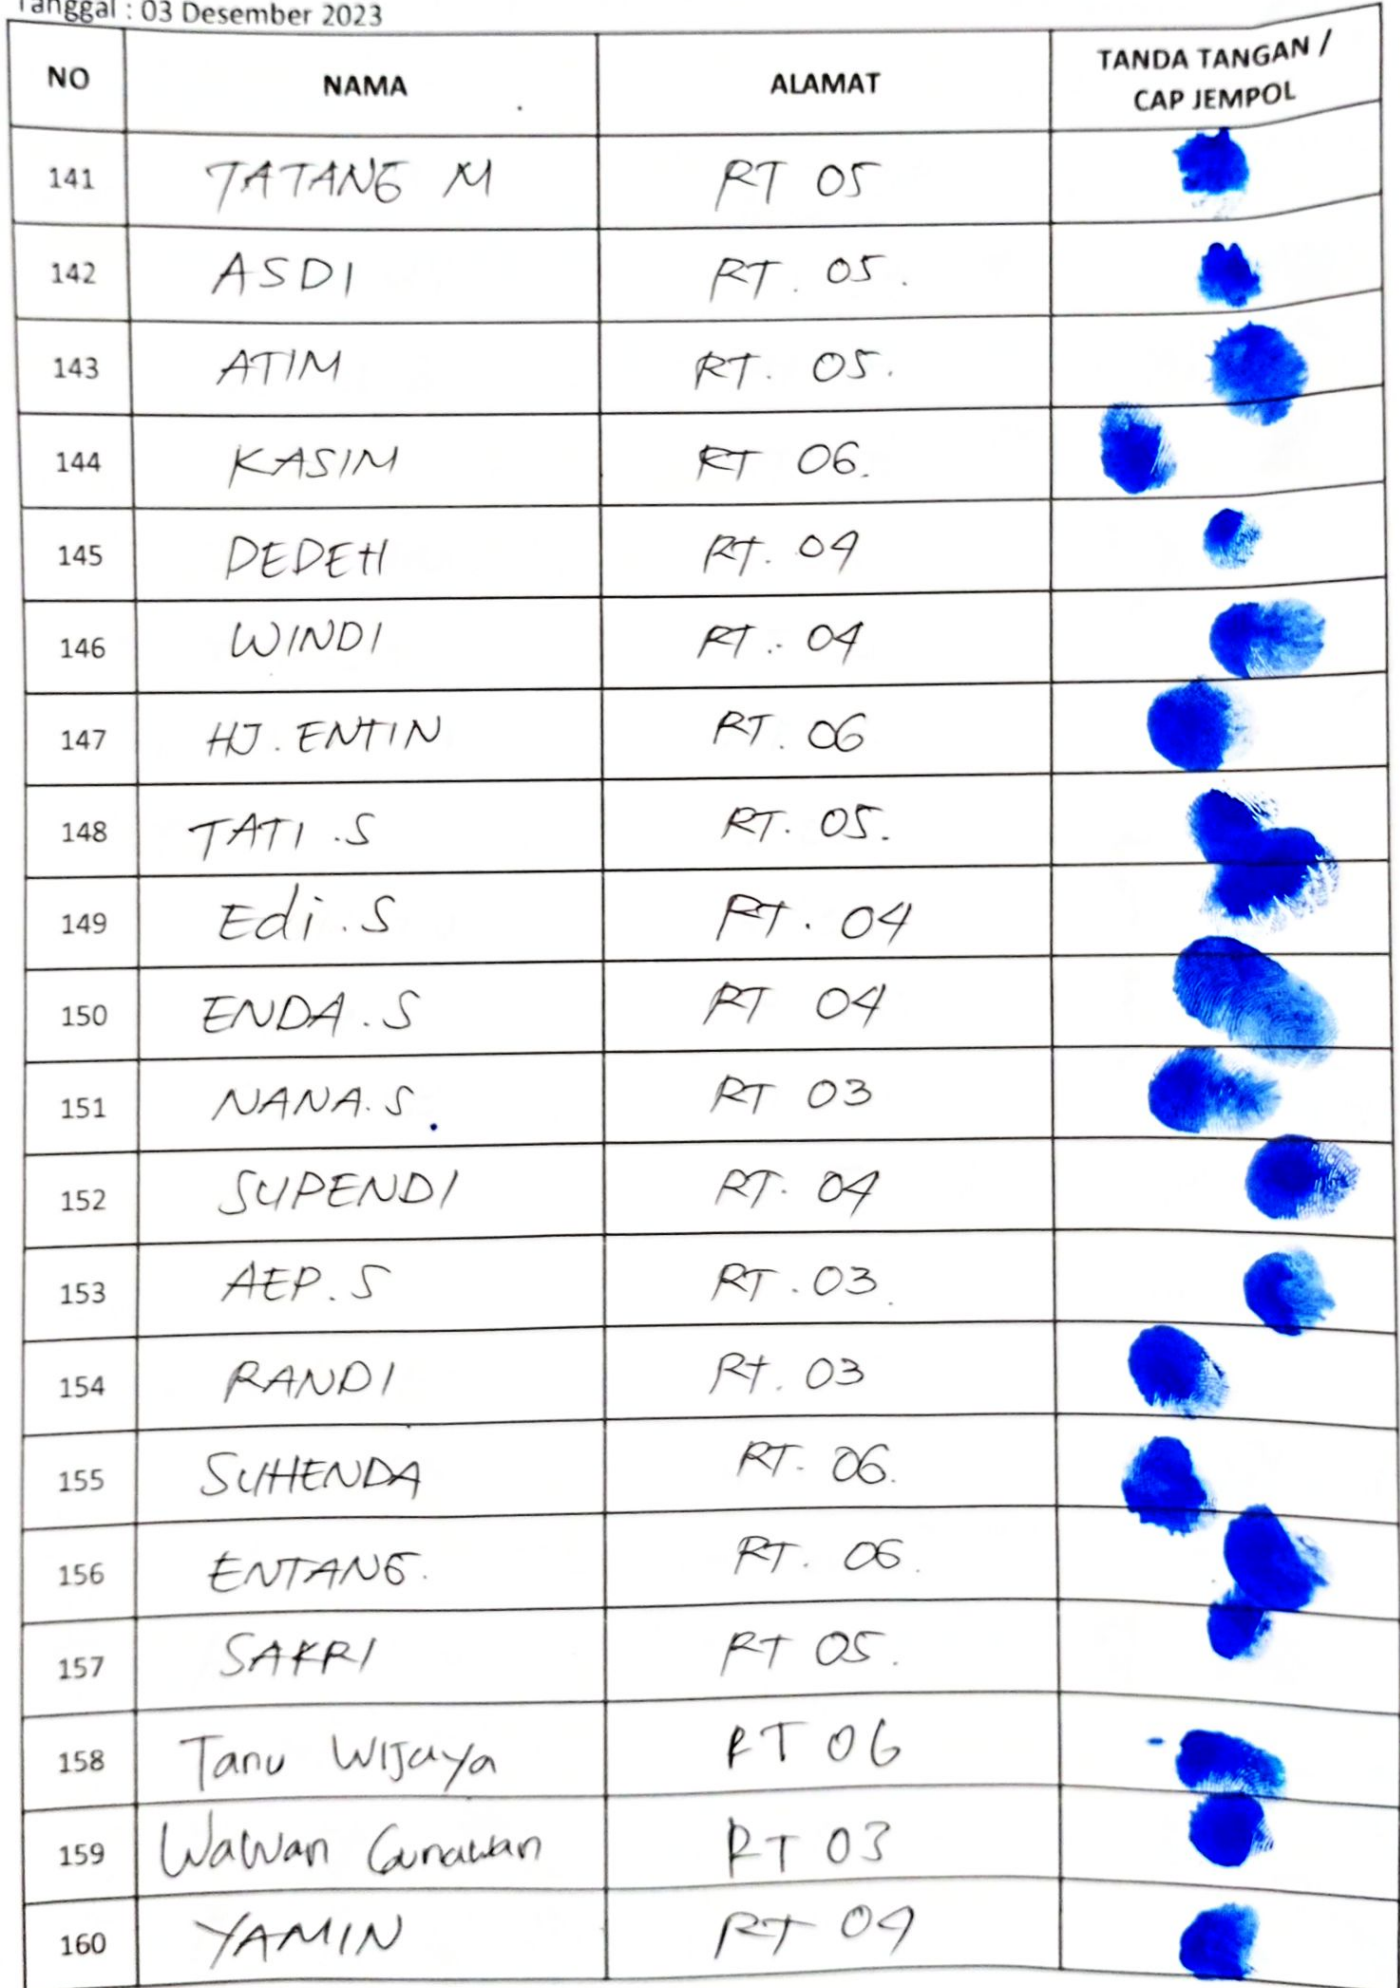 Tanggal : 03 Desember 2023
NO NAMA ALAMAT TANDA TANGAN / CAP JEMPOL
141 TATANG M RT 05
142 ASDI RT. 05.
143 ATIM RT. 05.
144 KASIM RT 06.
145 DEDEH RT. 04
146 WINDI RT. 04
147 HJ. ENTIN RT. 06
148 TATI .S RT. 05.
149 Edi .S RT. 04
150 ENDA .S RT 04
151 NANA.S RT 03
152 SUPENDI RT. 04
153 AEP. S RT. 03.
154 RANDI Rt. 03
155 SUHENDA RT. 06.
156 ENTANG. RT. 06.
157 SAKRI RT 05.
158 Tanu Wijaya RT 06
159 Wawan Gunawan RT 03
160 YAMIN RT 04